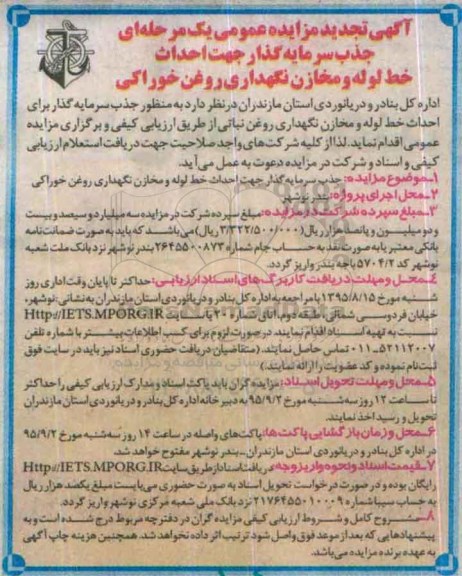 آگهی تجدید مزایده عمومی یک مرحله‌ای
جذب سرمایه گذار جهت احداث
خط لوله و مخازن نگهداری روغن خوراکی
اداره کل بنادر و دریانوردی استان مازندران در نظر دارد به منظور جذب سرمایه گذار برای
احداث خط لوله و مخازن نگهداری روغن نباتی از طریق ارزیابی کیفی و برگزاری مزایده
عمومی اقدام نماید. لذا از کلیه شرکت های واجد صلاحیت جهت دریافت استعلام ارزیابی
کیفی و اسناد و شرکت در مزایده دعوت به عمل می آید.
۱-موضوع مزایده: جذب سرمایه گذار جهت احداث خط لوله و مخازن نگهداری روغن خوراکی
۲-محل اجرای پروژه: بندر نوشهر
۳-مبلغ سپرده شرکت در مزایده: مبلغ سپرده شرکت در مزایده سه میلیارد و سیصد و بیست
و دو میلیون و پانصد هزار ریال (۳/۳۲۲/۵۰۰/۰۰۰ ریال) می باشد که باید به صورت ضمانت نامه
بانکی معتبر یا به صورت نقد به حساب جام شماره ۲۶۴۵۵۰۰۸۷۳ بندر نوشهر نزد بانک ملت شعبه
نوشهر کد ۵۷۰۴/۲ باجه بندر واریز گردد.
۴-محل و مهلت دریافت کاربرگ های اسناد ارزیابی: حداکثر تا پایان وقت اداری روز
شنبه مورخ ۱۳۹۵/۸/۱۵ با مراجعه به اداره کل بنادر و دریانوردی استان مازندران به نشانی: نوشهر،
خیابان فردوسی شمالی، طبقه دوم، اتاق شماره ۲۰۰ یا سایت Http://IETS.MPORG.IR
نسبت به تهیه اسناد اقدام نمایند. در صورت لزوم برای کسب اطلاعات بیشتر با شماره تلفن
۰۱۱-۵۲۱۱۲۰۰۷ تماس حاصل نمایند. (متقاضیان دریافت حضوری اسناد نیز باید در سایت فوق
ثبت نام نموده و کد عضویت را ارائه نمایند.)
۵-محل و مهلت تحویل اسناد: مزایده گران باید پاکت اسناد و مدارک ارزیابی کیفی را حداکثر
تا ساعت ۱۲ روز سه شنبه مورخ ۹۵/۹/۲ به دبیرخانه اداره کل بنادر و دریانوردی استان مازندران
تحویل و رسید اخذ نمایند.
۶-محل و زمان بازگشایی پاکت ها: پاکت های واصله در ساعت ۱۴ روز سه شنبه مورخ ۹۵/۹/۲
در اداره کل بنادر و دریانوردی استان مازندران-بندر نوشهر مفتوح خواهد شد.
۷-قیمت اسناد و نحوه واریز وجه: دریافت اسناد از طریق سایت Http://IETS.MPORG.IR
رایگان بوده و در صورت درخواست تحویل اسناد به صورت حضوری می بایست مبلغ یکصد هزار ریال
به حساب سیبا شماره ۲۱۷۶۴۵۵۰۱۰۰۰۹ نزد بانک ملی شعبه مرکزی نوشهر واریز گردد.
۸-شروح کامل و شروط ارزیابی کیفی مزایده گران در دفترچه مربوط درج شده است و به
پیشنهادهایی که بعد از موعد فوق واصل شود ترتیب اثر داده نخواهد شد. همچنین هزینه چاپ آگهی
به عهده برنده مزایده می باشد.